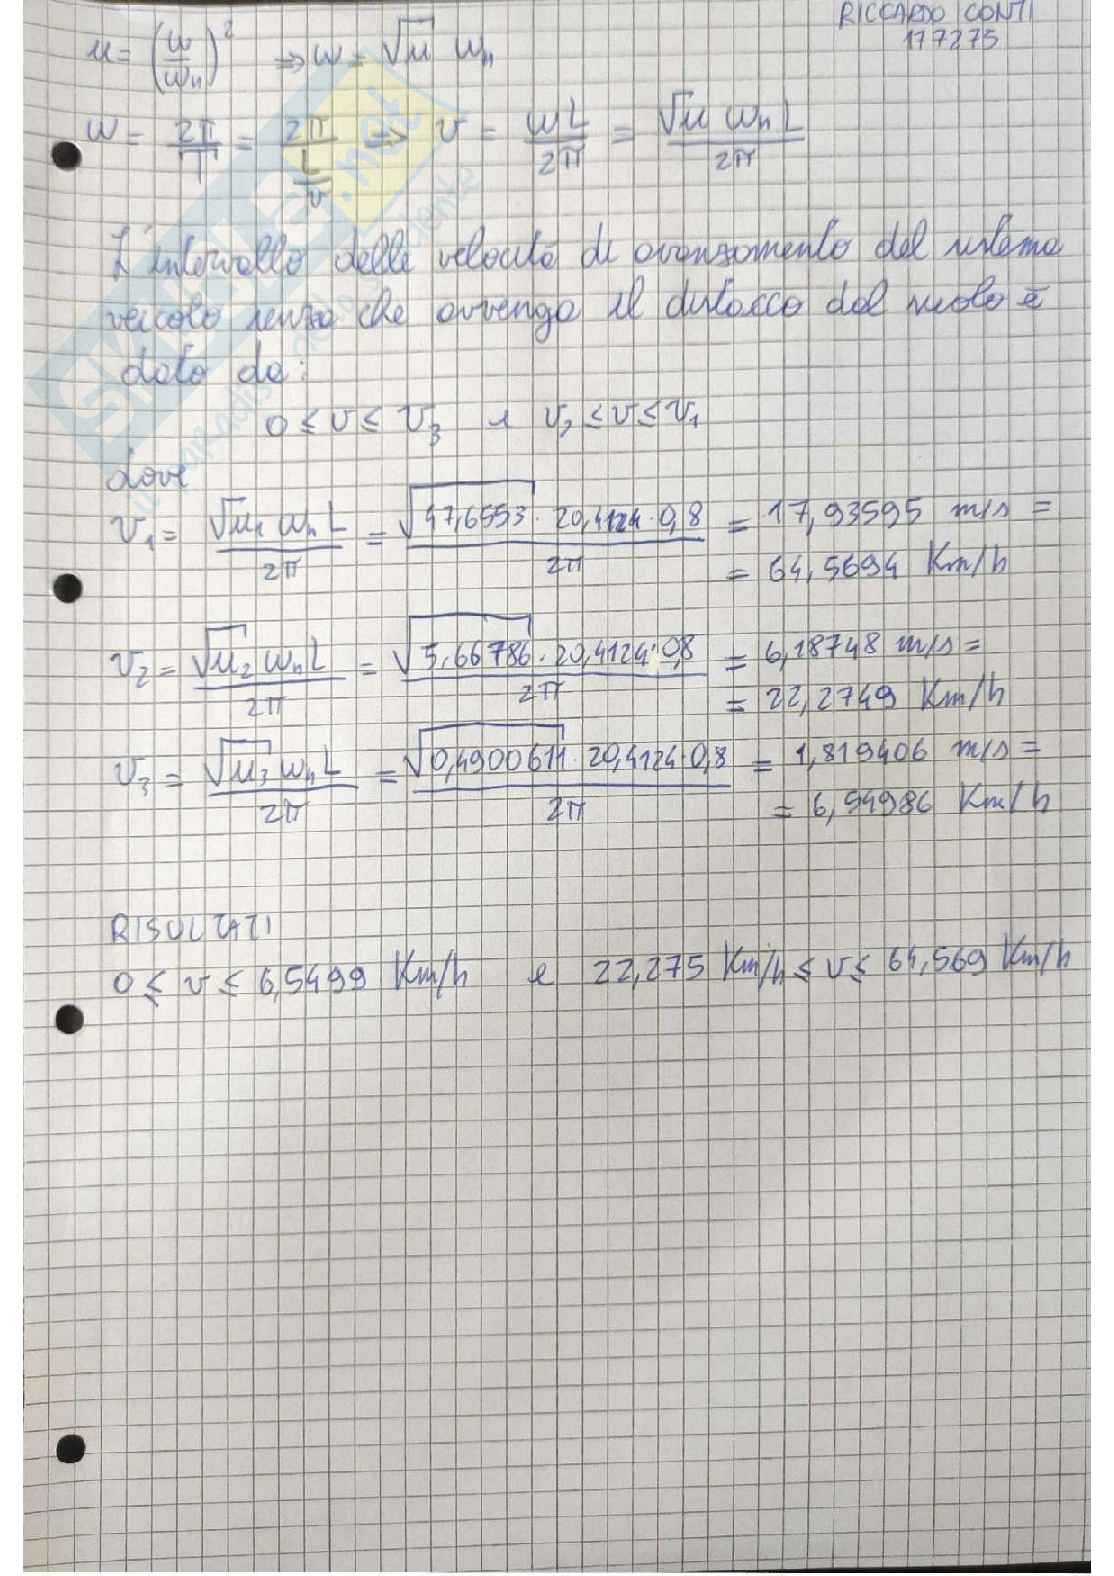 RICCARDO CONTI
177275
u = (ω/ωn)² ⇒ ω = √u ωn
ω = 2π/T = 2π/(L/v) ⇒ v = ωL/2π = √u ωn L/2π
L'intervallo delle velocità di avanzamento del sistema
veicolo senza che avvenga il distacco dal suolo è
dato da:
0 ≤ v ≤ v3 e v2 ≤ v ≤ v1
dove
v1 = √u1 ωn L/2π = √47,6553 · 20,4124 · 0,8/2π = 17,93595 m/s =
= 64,5694 Km/h
v2 = √u2 ωn L/2π = √5,66786 · 20,4124 · 0,8/2π = 6,18748 m/s =
= 22,2749 Km/h
v3 = √u3 ωn L/2π = √0,4900611 · 20,4124 · 0,8/2π = 1,819406 m/s =
= 6,54986 Km/h
RISULTATI
0 ≤ v ≤ 6,5499 Km/h e 22,275 Km/h ≤ v ≤ 64,569 Km/h